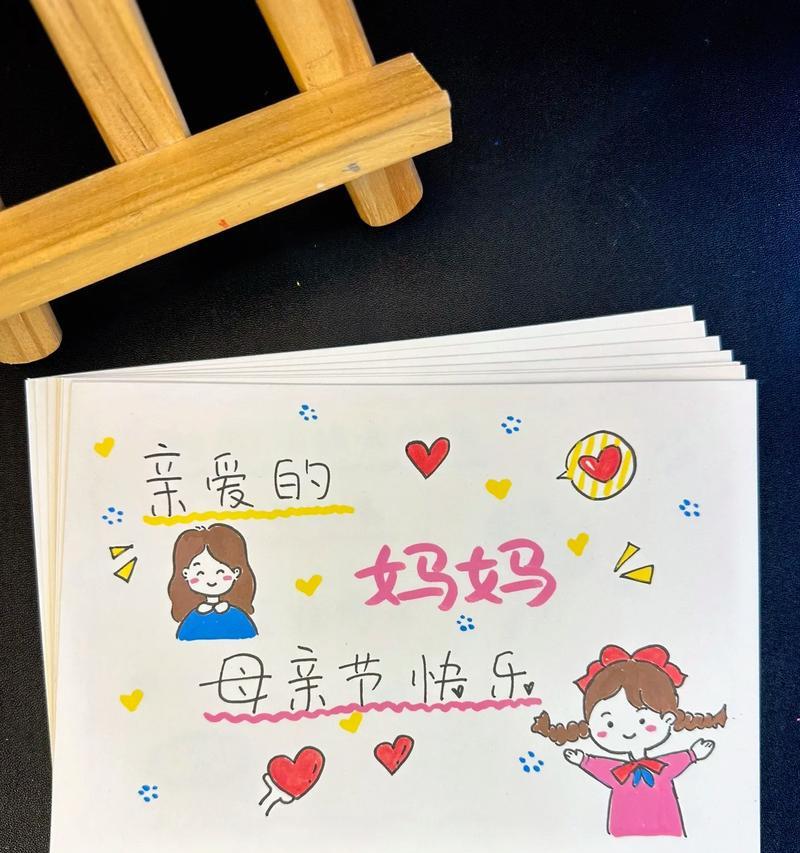 亲爱的
妈妈
母亲节快乐